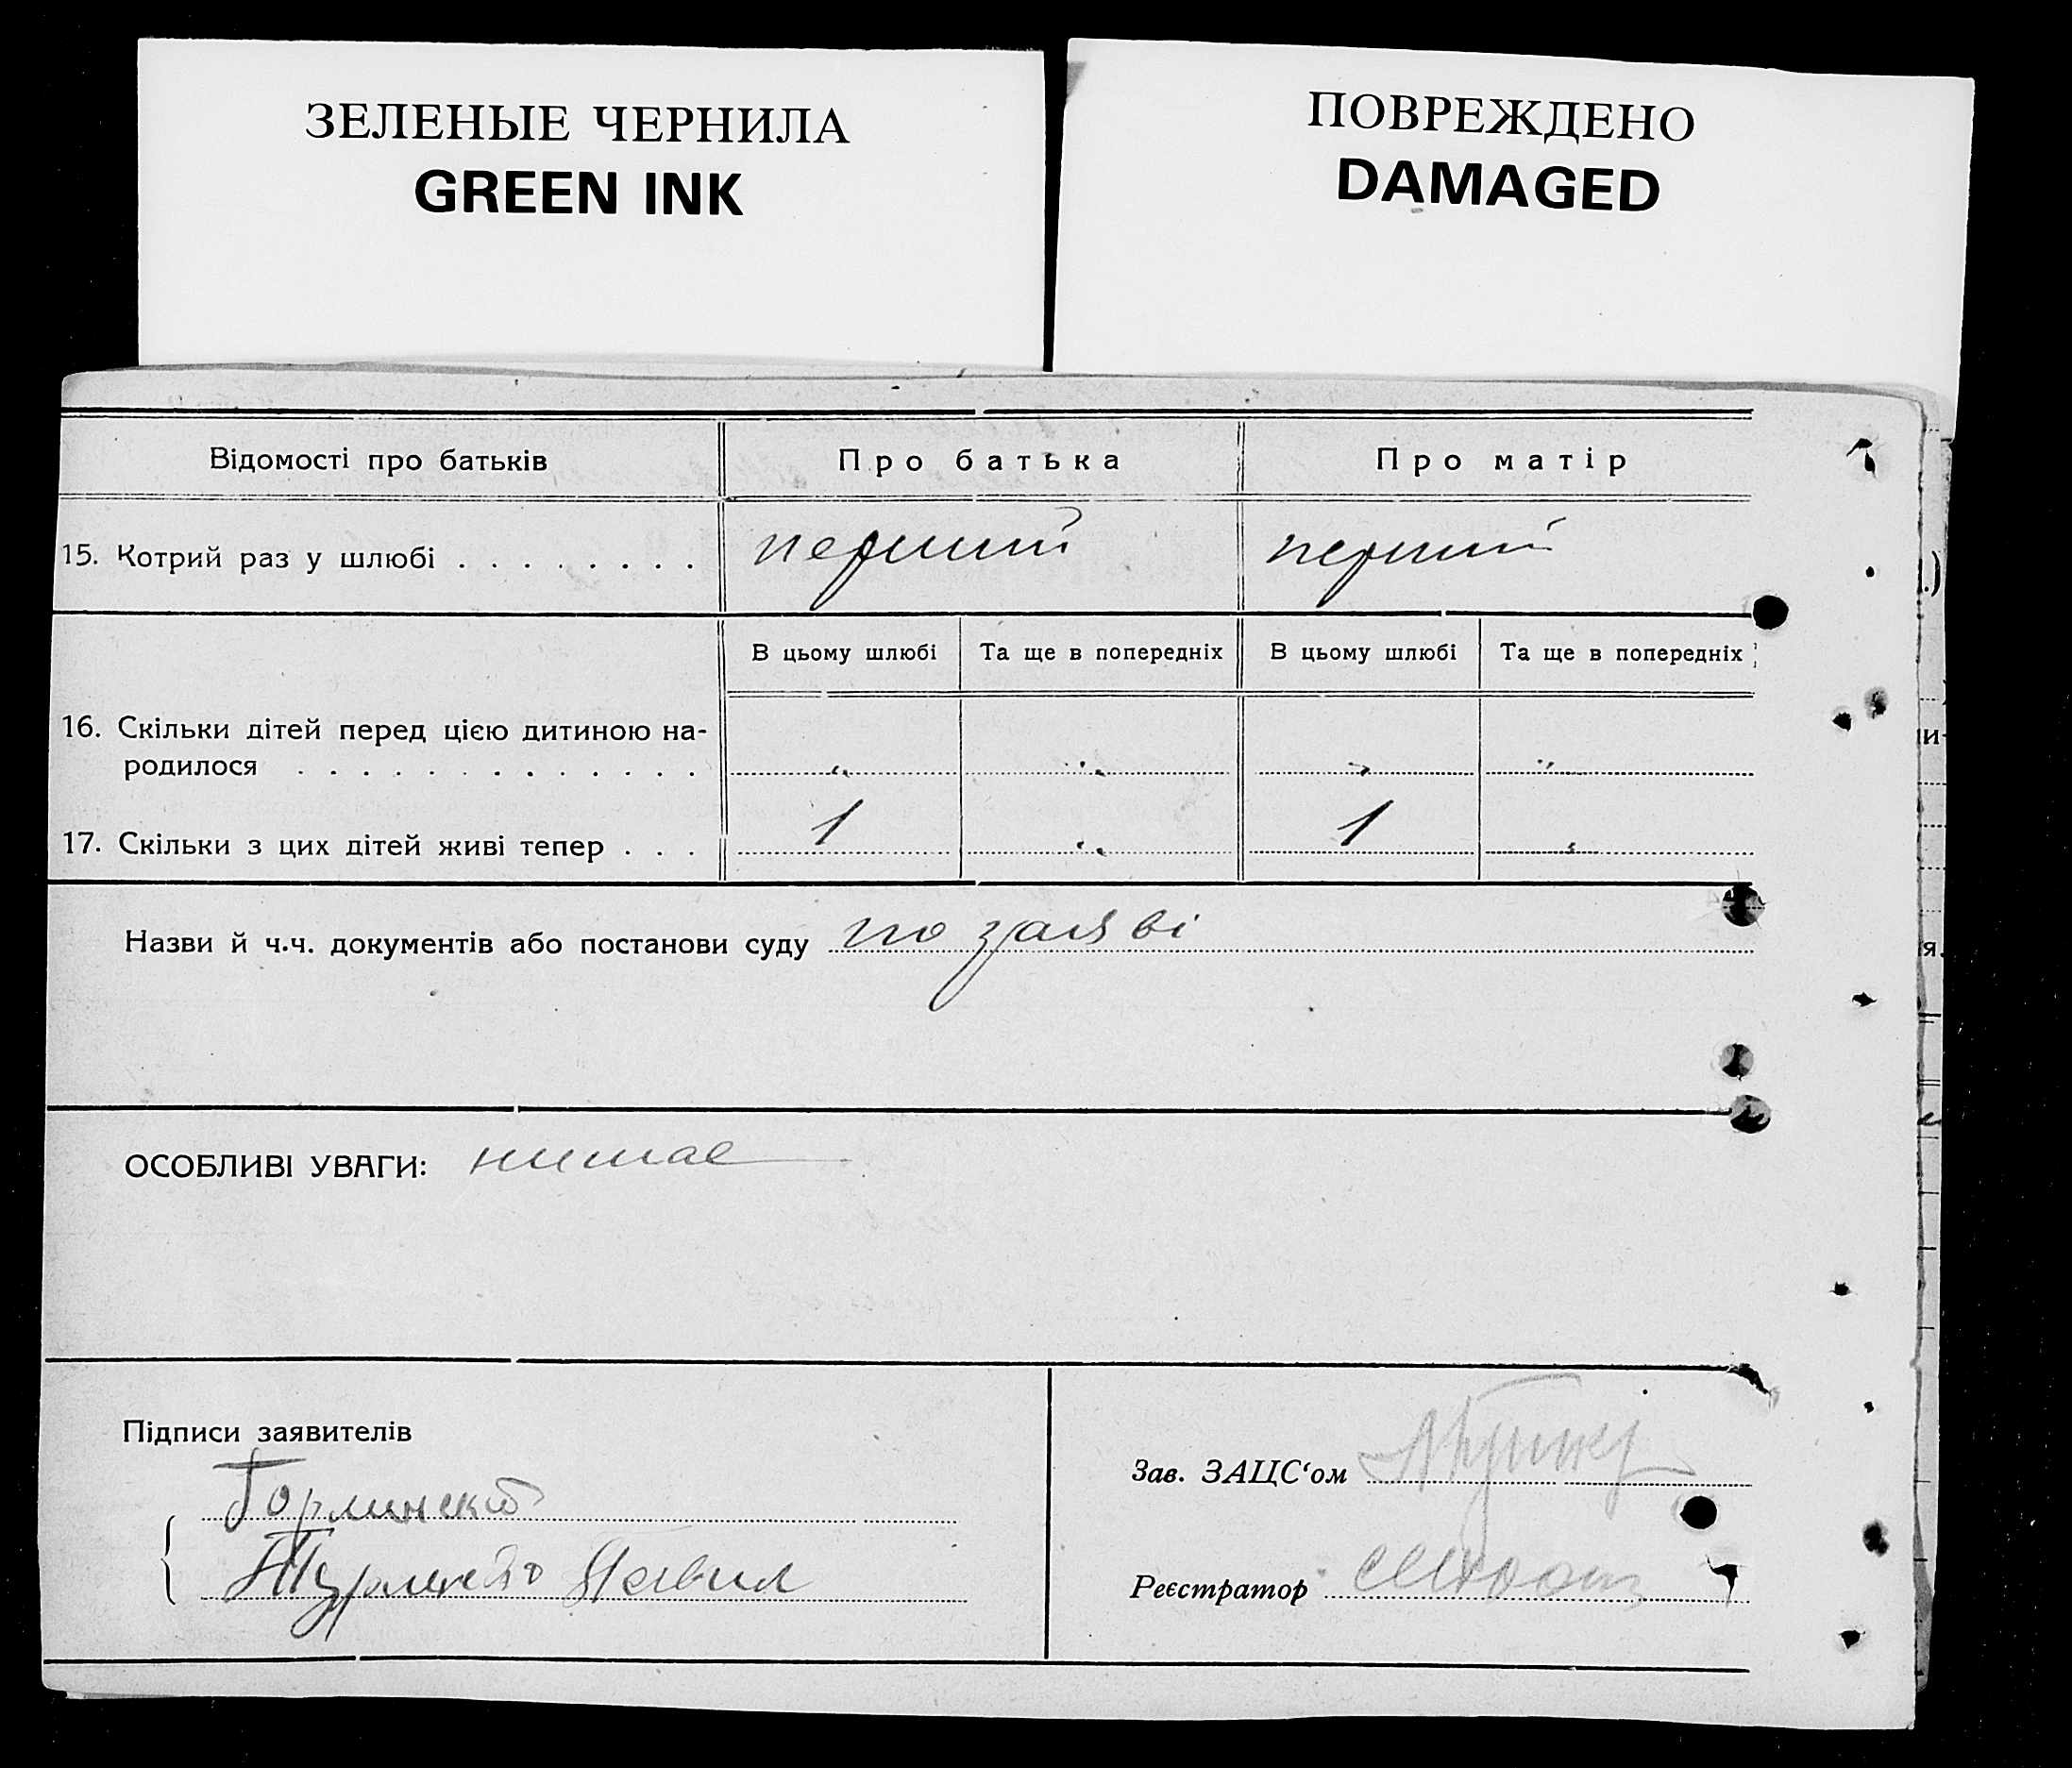 ЗЕЛЕНЫЕ ЧЕРНИЛА
GREEN INK
ПОВРЕЖДЕНО
DAMAGED
Відомості про батьків Про батька Про матір
15. Котрий раз у шлюбі . . . . . . . . перший перший
В цьому шлюбі Та ще в попередніх В цьому шлюбі Та ще в попередніх
16. Скільки дітей перед цією дитиною на-
родилося . . . . . . . . . . . . .
17. Скільки з цих дітей живі тепер . . . 1 1
Назви й ч.ч. документів або постанови суду по заяві
ОСОБЛИВІ УВАГИ: нимає
Підписи заявителів
Зав. ЗАЦС‘ом
Реєстратор